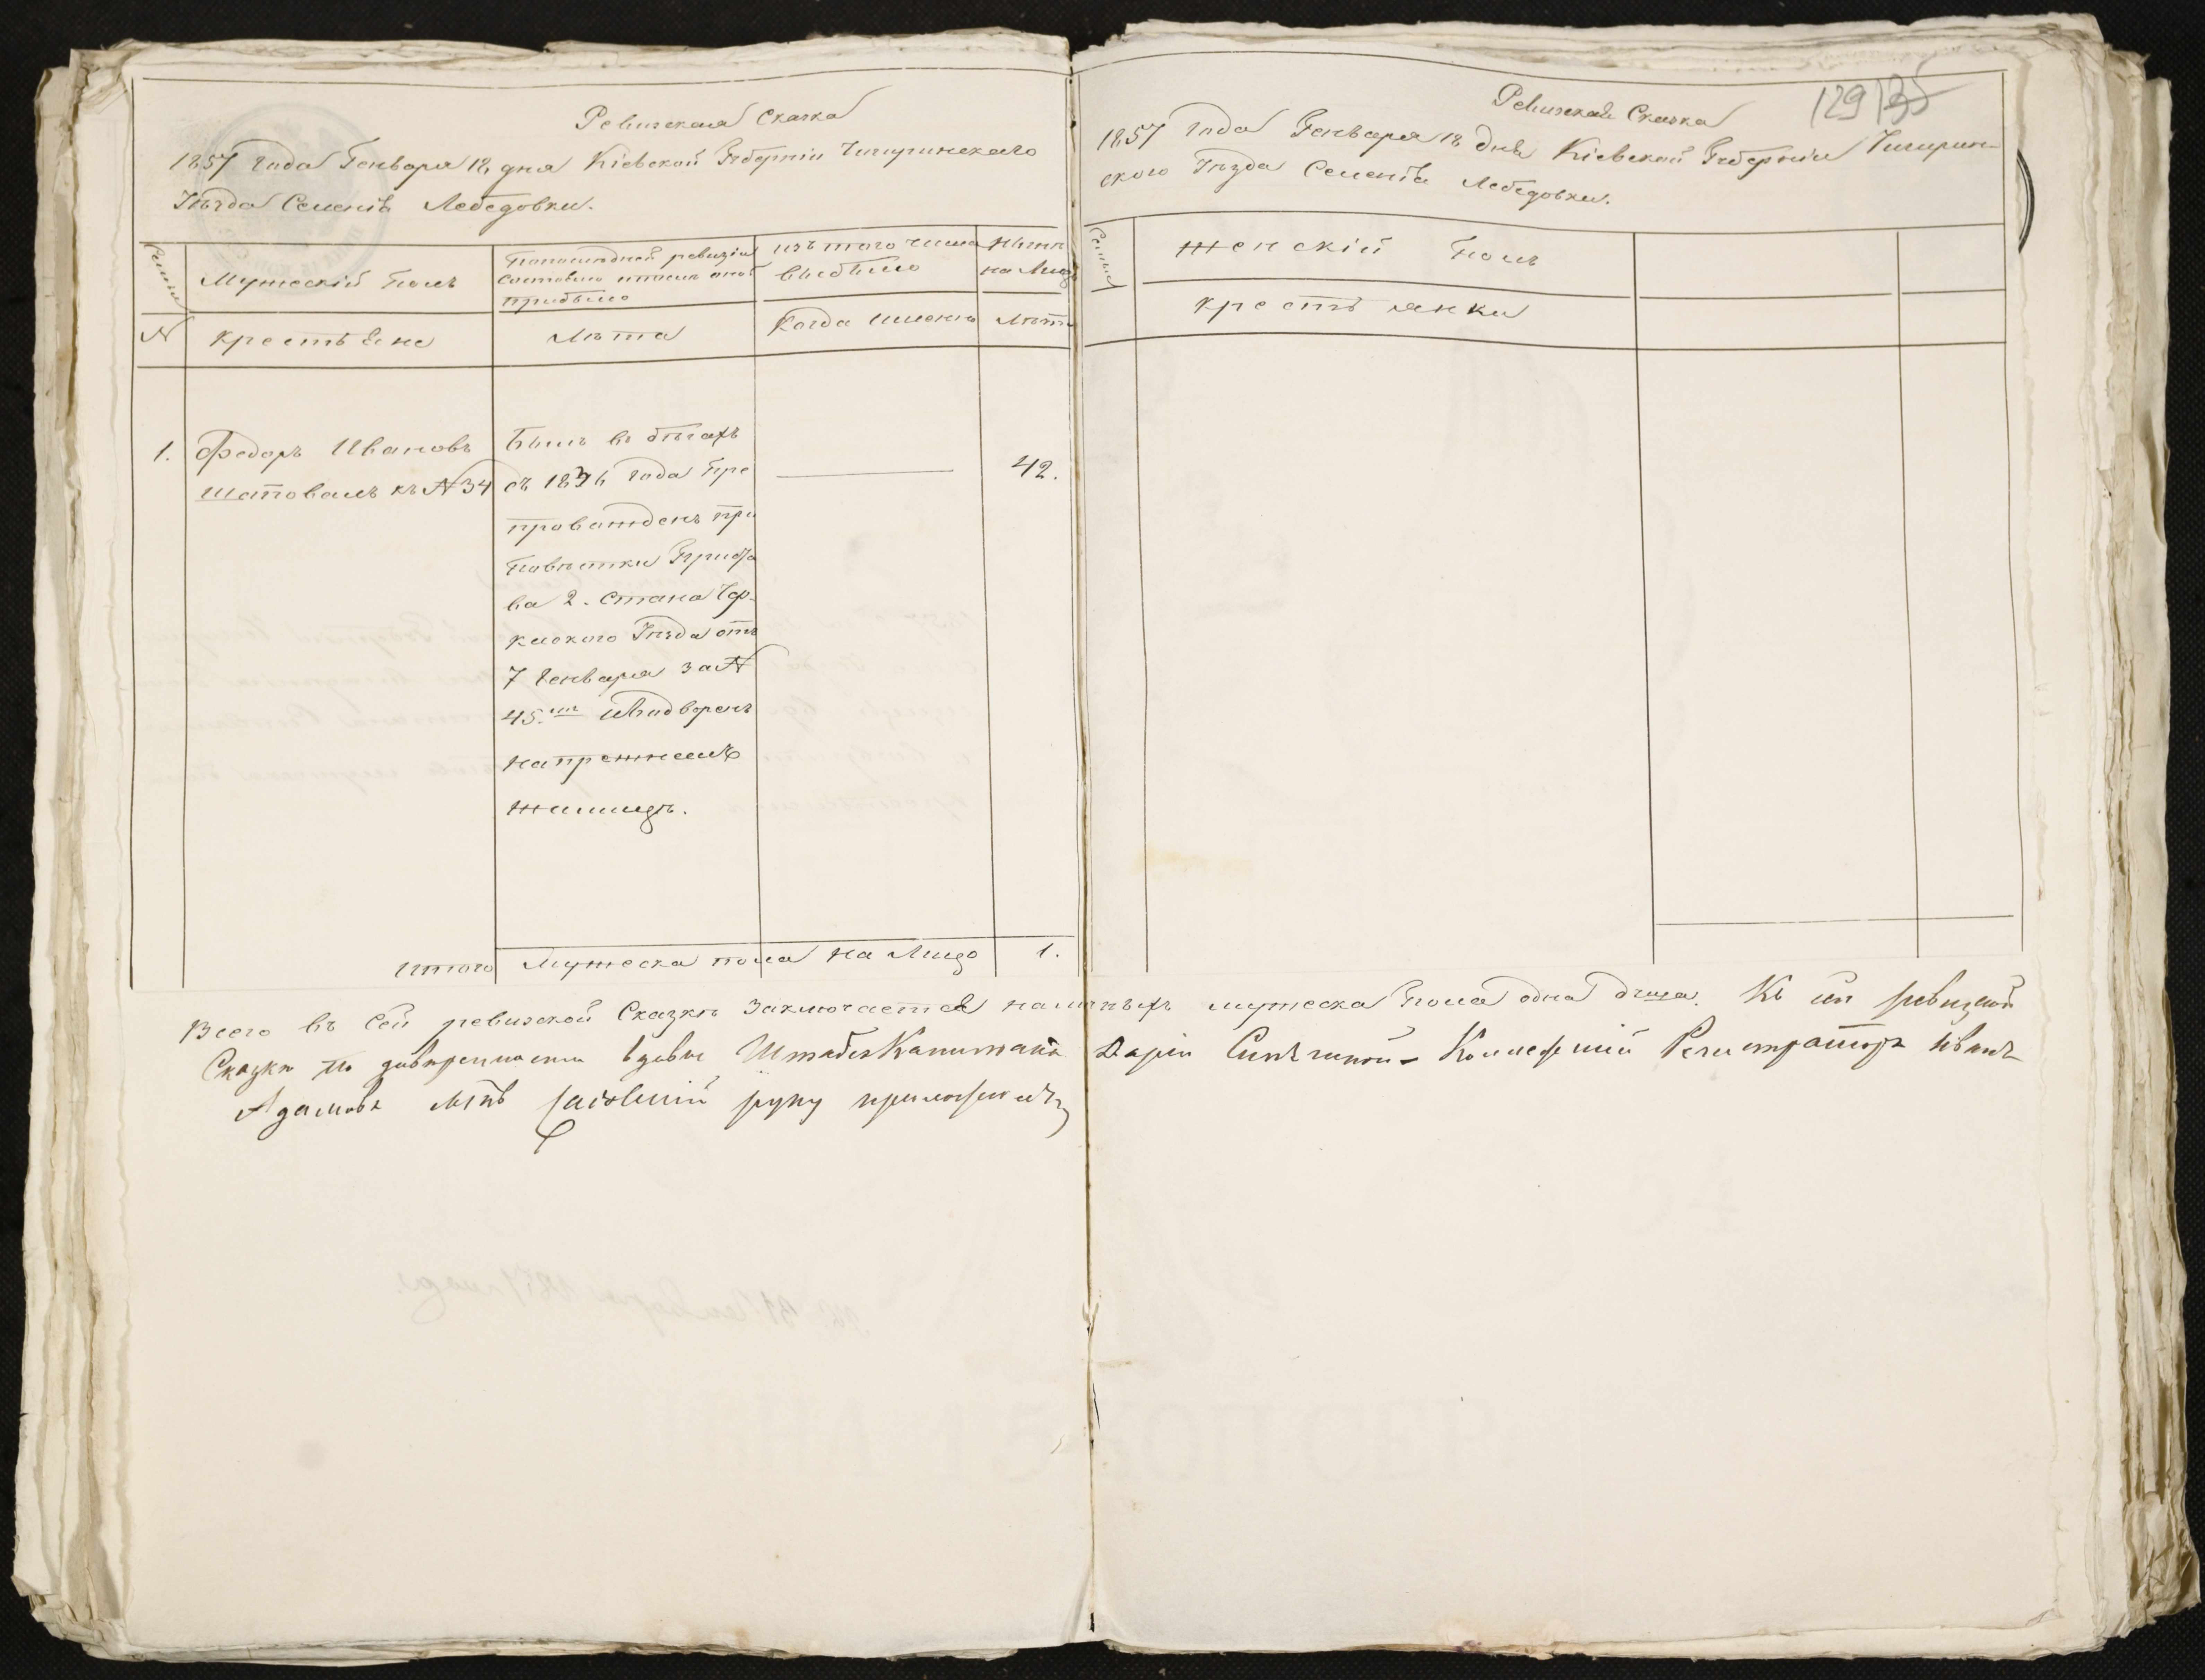 Ревизская Сказка
1857 года Генваря 18 дня Кіевской Губерніи Чигиринскаго
Уѣзда Селенія Лебедовки.
Семьи
Мужескій полъ
По последней ревизіи
состояло и после оной
прибыло
изъ того числа
выбыло
Ныне
на Лицо
N
крестьяне
Лѣта
Когда именно
Лѣта
1.
Федоръ Ивановъ
Шаповалъ къ N 34
Былъ в бѣгахъ
съ 1836 года Пре
провожденъ при
Повѣстки
ва 2. Стана Чер
каского Уѣзда отъ
7 Генваря за N
45.мъ Водворенъ
на прежнемъ
жилищѣ.
42.
итого Мужеска пола на Лицо 1.
129 135
Ревизская Сказка
1857 года Генваря 18 Дня Кіевской Губерніи Чигирин
ского Уѣзда Селенія Лебедовки.
Семьи
Женскій Полъ
крестьянки
Всего въ Сей ревизской Сказке Заключается наличныхъ мужеска пола одна душа. Къ сей ревизской
Сказке по доверенности вдовы Штабсъ Капитана Даріи Коллежскій Регистраторъ Иванъ
Адамовъ сынъ руку приложилъ